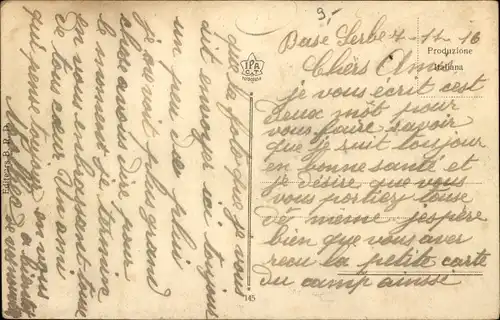 9-
Base Serbe 7-11-16
Produzione
Italiana
Chièrs Amis
je vous écrit cest
deux môt pour
vous faire savoir
que je suit toujour
en bonne santé et
je désire que vous
vous portiez touse
de même j'espère
bien que vous aver
recu la petite carte
du camp ainsse
que la foto que je vous
ait envoyer ici toujous
un peu de plui
je orait plus grant
chose a vous dire pour
le moment je termine
en vous enbrasent touse
de tous cœur. Un ami
qui pense tousjour on vous
a bientot
IPA
C.T.
145
Editore B. R. D.